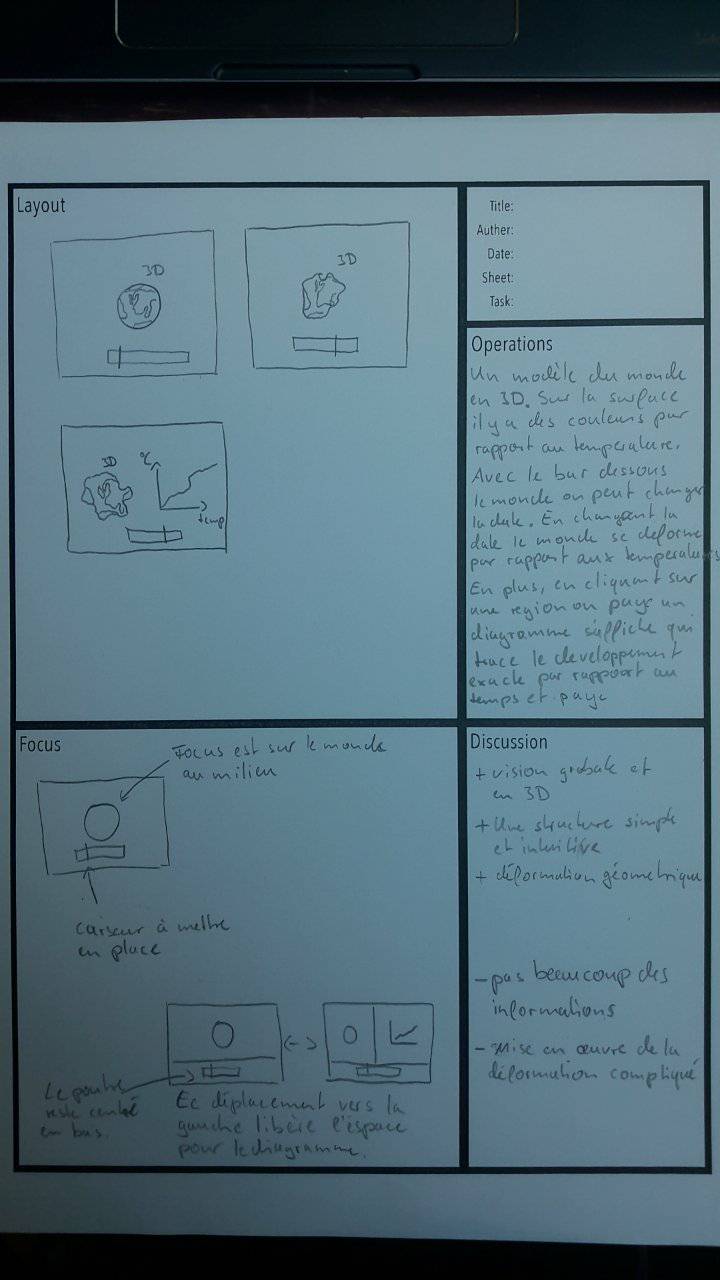 Layout
3D
3D
3D
°C
temp
Title:
Auther:
Date:
Sheet:
Task:
Operations
Un modèle du monde
en 3D. Sur la surface
il y a des couleurs par
rapport au température.
Avec le bar dessous
le monde on peut changer
la date. En changeant la
date le monde se déforme
par rapport aux temperatures
En plus, en cliquant sur
une region ou pays un
diagramme s'affiche qui
trace le developpement
exacte par rapport au
temps et pays
Focus
Focus est sur le monde
au milieu
curseur à mettre
en place
Le poutre
reste centré
en bas.
Le déplacement vers la
gauche libère l'espace
pour le diagramme.
Discussion
+ vision globale et
en 3D
+ Une structure simple
et intuitive
+ déformation géometrique
- pas beaucoup des
informations
- Mise en œuvre de la
déformation compliqué